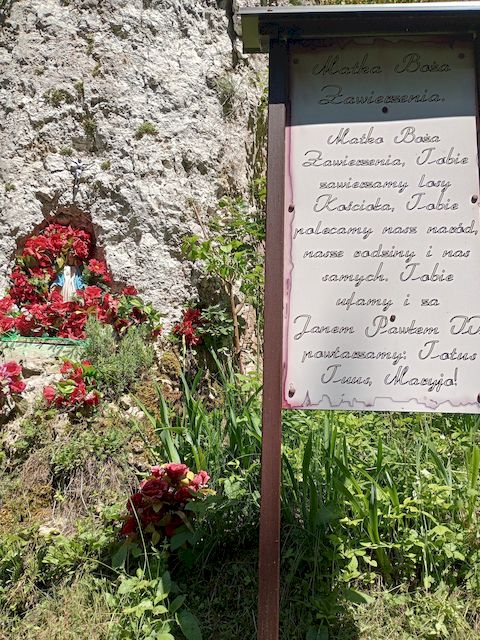 Matka Boża
Zawierzenia.
Matko Boża
Zawierzenia, Tobie
zawierzamy losy
Kościoła, Tobie
polecamy nasz naród,
nasze rodziny i nas
samych. Tobie
ufamy i za
Janem Pawłem II
powtarzamy: Totus
Tuus, Maryjo!